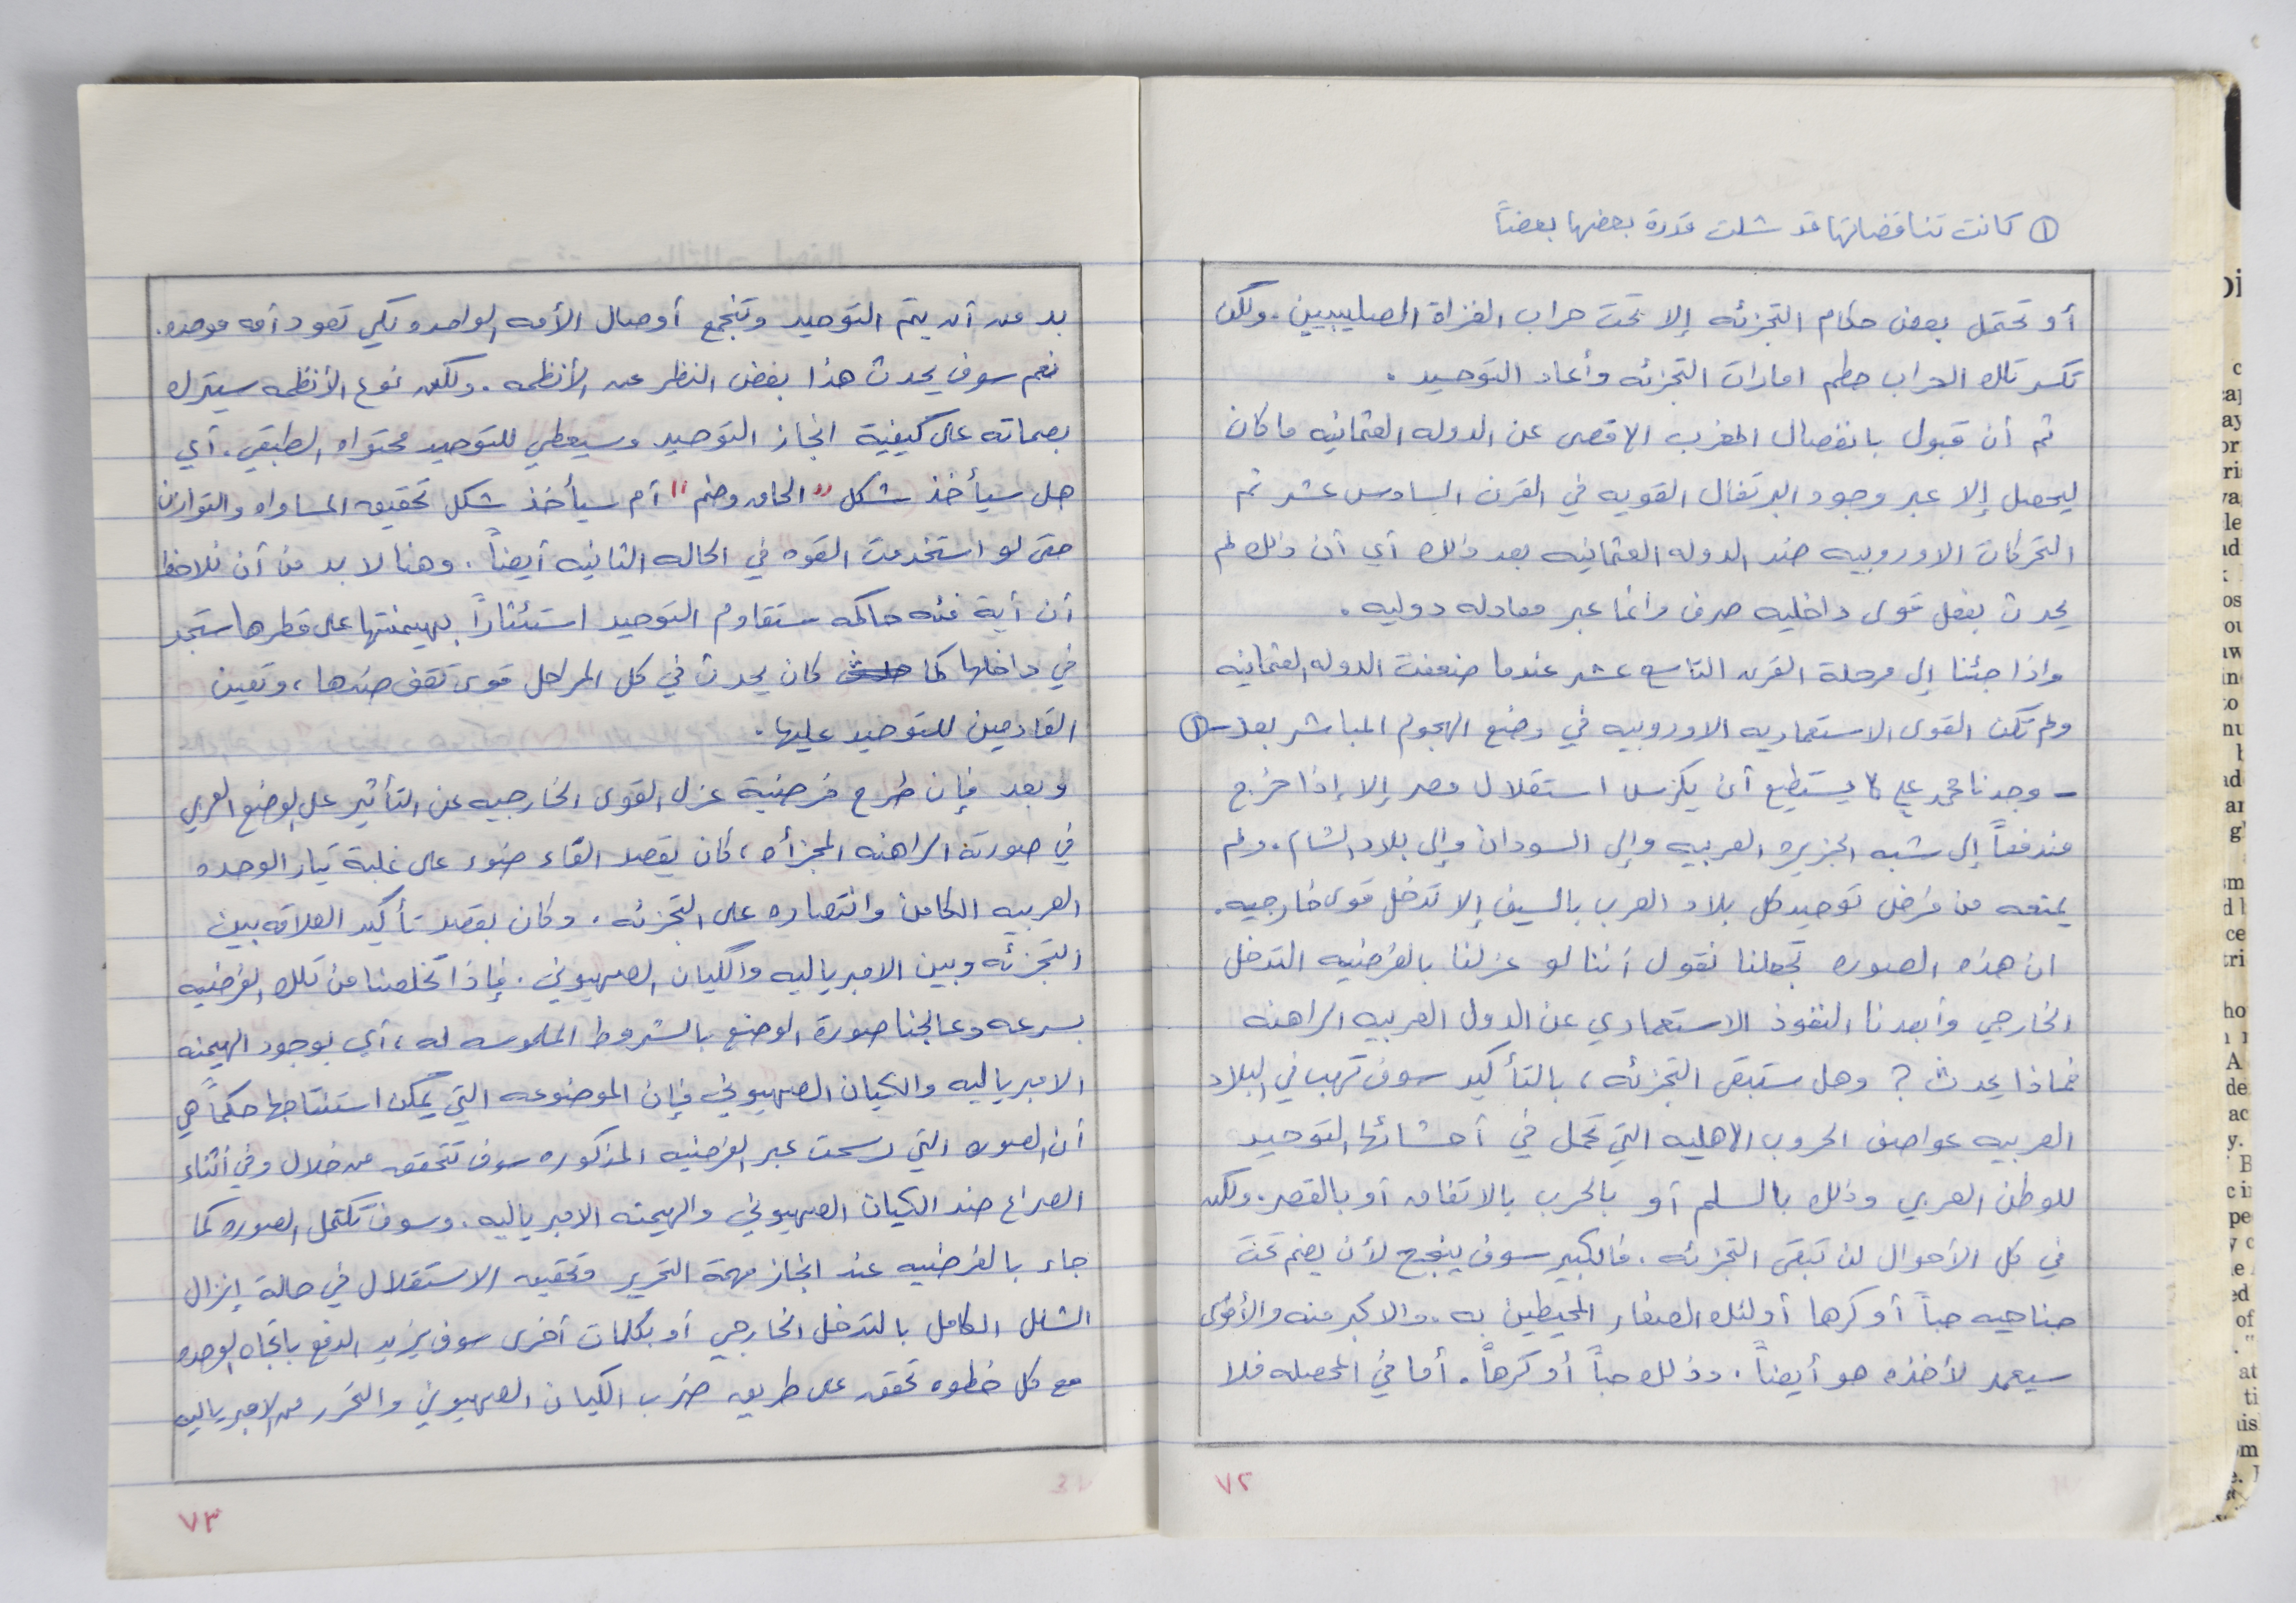 ① كانت تناقضاتها قد شلت قدرة بعضها بعضاً
أو تحتمل بعض حكام التجزئه إلا تحت حراب الغزاة الصليبيين. ولكن
تكسر تلك الحراب حطم امارات التجزئه وأعاد التوحيد .
ثم أن قبول بانفصال المغرب الاقصى عن الدوله العثمانيه ما كان
ليحصل إلا عبر وجود البرتغال القويه في القرن السادس عشر ثم
التحركات الاوروبيه ضد الدوله العثمانيه بعد ذلك أي أن ذلك لم
يحدث بفعل قوى داخليه صرف وانما عبر معادله دوليه .
واذا جئنا إلى مرحلة القرن التاسع عشر عندما ضعفت الدوله العثمانيه
ولم تكن القوى الاستعماريه الاوروبيه في وضع الهجوم المباشر بعد - ①
- وجدنا محمد علي لا يستطيع أن يكرس استقلال مصر إلا إذا خرج
مندفعاً إلى شبه الجزيره العربيه وإلى السودان وإلى بلاد الشام. ولم
يمنعه من فرض توحيد كل بلاد العرب بالسيف إلا تدخل قوى خارجيه.
ان هذه الصوره تجعلنا نقول أننا لو عزلنا بالفرضيه التدخل
الخارجي وأبعدنا النفوذ الاستعماري عن الدول العربيه الراهنه
فماذا يحدث ؟ وهل ستبقى التجزئه ، بالتأكيد سوف تهب في البلاد
العربيه عواصف الحروب الاهليه التي تحمل في أحشائها التوحيد
للوطن العربي وذلك بالسلم أو بالحرب بالاتفاق أو بالقصر. ولكن
في كل الأحوال لن تبقى التجزئه . فالكبير سوف ينجح لأن يضم تحت
جناحيه حباً أو كرها أولئك الصغار المحيطين به. والاكبر منه والأقوى
سيعمد لأخذه هو أيضاً . وذلك حباً أو كرهاً. أما في المحصله فلا
٧٢
بد من أن يتم التوحيد وتتجمع أوصال الأمه الواحده لكي تعود أمه موحده.
نعم سوف يحدث هذا بغض النظر عن الأنظمه . ولكن نوع الأنظمه سيترك
بصماته على كيفية انجاز التوحيد وسيعطي للتوحيد محتواه الطبقي. أي
هل سيأخذ شكل "الحاق وضم" أم سيأخذ شكل تحقيق المساواه والتوازن
حتى لو استخدمت القوه في الحاله الثانيه أيضاً . وهنا لا بد من أن نلاحظ
أن أية فئه حاكمه ستقاوم التوحيد استئثاراً بهيمنتها على قطرها ستجد
في داخلها كما كان يحدث في كل المراحل قوى تقف ضدها ، وتعين
القادمين للتوحيد عليها .
وبعد فإن طرح فرضية عزل القوى الخارجيه عن التأثير على الوضع العربي
في صورته الراهنه المجزأه ، كان يقصد القاء ضوء على غلبة تيار الوحده
العربيه الكامن وانتصاره على التجزئه . وكان يقصد تأكيد العلاقه بين
التجزئه وبين الامبرياليه والكيان الصهيوني . فإذا تخلصنا من تلك الفرضيه
بسرعه وعالجنا صورة الوضع بالشروط الملموسه له ، أي بوجود الهيمنه
الامبرياليه والكيان الصهيوني فإن الموضوعه التي يمكن استنتاجها حكماً هي
أن الصوره التي رسمت عبر الفرضيه المذكوره سوف تتحقق من خلال وفي أثناء
الصراع ضد الكيان الصهيوني والهيمنه الامبرياليه . وسوف تكتمل الصوره كما
جاء بالفرضيه عند انجاز مهمة التحرير وتحقيق الاستقلال في حالة إنزال
الشلل الكامل بالتدخل الخارجي أو بكلمات أخرى سوف يزيد الدفع باتجاه الوحده
مع كل خطوه تحقق على طريق ضرب الكيان الصهيوني والتحرر من الامبرياليه
٧٣